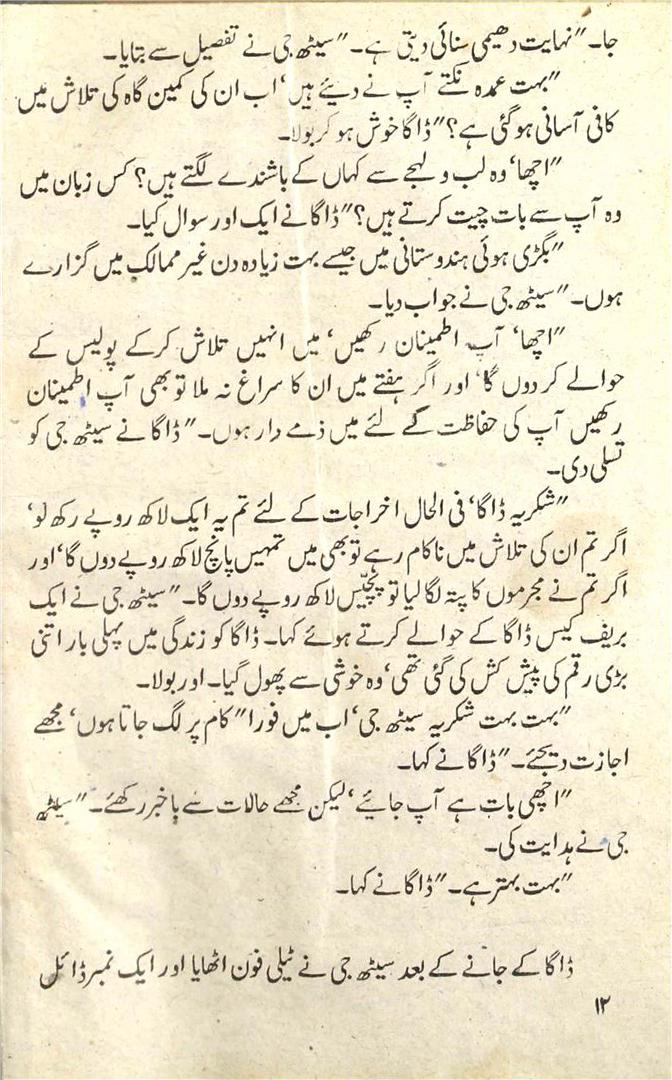 جا۔" نہایت دھیمی سنائی دیتی ہے۔" سیٹھ جی نے تفصیل سے بتایا۔
"بہت عمدہ نکتے آپ نے دیئے ہیں‘ اب ان کی کمین گاہ کی تلاش میں
کافی آسانی ہو گئی ہے؟" ڈاگا خوش ہو کر بولا۔
"اچھا‘ وہ لب و لہجے سے کہاں کے باشندے لگتے ہیں؟ کس زبان میں
وہ آپ سے بات چیت کرتے ہیں؟" ڈاگا نے ایک اور سوال کیا۔
"بگڑی ہوئی ہندوستانی میں جیسے بہت زیادہ دن غیر ممالک میں گزارے
ہوں۔" سیٹھ جی نے جواب دیا۔
"اچھا‘ آپ اطمینان رکھیں‘ میں انہیں تلاش کرکے پولیس کے
حوالے کر دوں گا‘ اور اگر ہفتے میں ان کا سراغ نہ ملا تو بھی آپ اطمینان
رکھیں آپ کی حفاظت کے لئے میں ذمے دار ہوں۔" ڈاگا نے سیٹھ جی کو
تسلی دی۔
"شکریہ ڈاگا‘ فی الحال اخراجات کے لئے تم یہ ایک لاکھ روپے رکھ لو‘
اگر تم ان کی تلاش میں ناکام رہے تو بھی میں تمہیں پانچ لاکھ روپے دوں گا‘ اور
اگر تم نے مجرموں کا پتہ لگا لیا تو پچیس لاکھ روپے دوں گا۔" سیٹھ جی نے ایک
بریف کیس ڈاگا کے حوالے کرتے ہوئے کہا۔ ڈاگا کو زندگی میں پہلی بار اتنی
بڑی رقم کی پیش کش کی گئی تھی‘ وہ خوشی سے پھول گیا۔ اور بولا۔
"بہت بہت شکریہ سیٹھ جی‘ اب میں فورا" کام پر لگ جاتا ہوں‘ مجھے
اجازت دیجئے۔" ڈاگا نے کہا۔
"اچھی بات ہے آپ جائیے‘ لیکن مجھے حالات سے باخبر رکھئے۔" سیٹھ
جی نے ہدایت کی۔
"بہت بہتر ہے۔" ڈاگا نے کہا۔
ڈاگا کے جانے کے بعد سیٹھ جی نے ٹیلی فون اٹھایا اور ایک نمبر ڈائل
۱۲